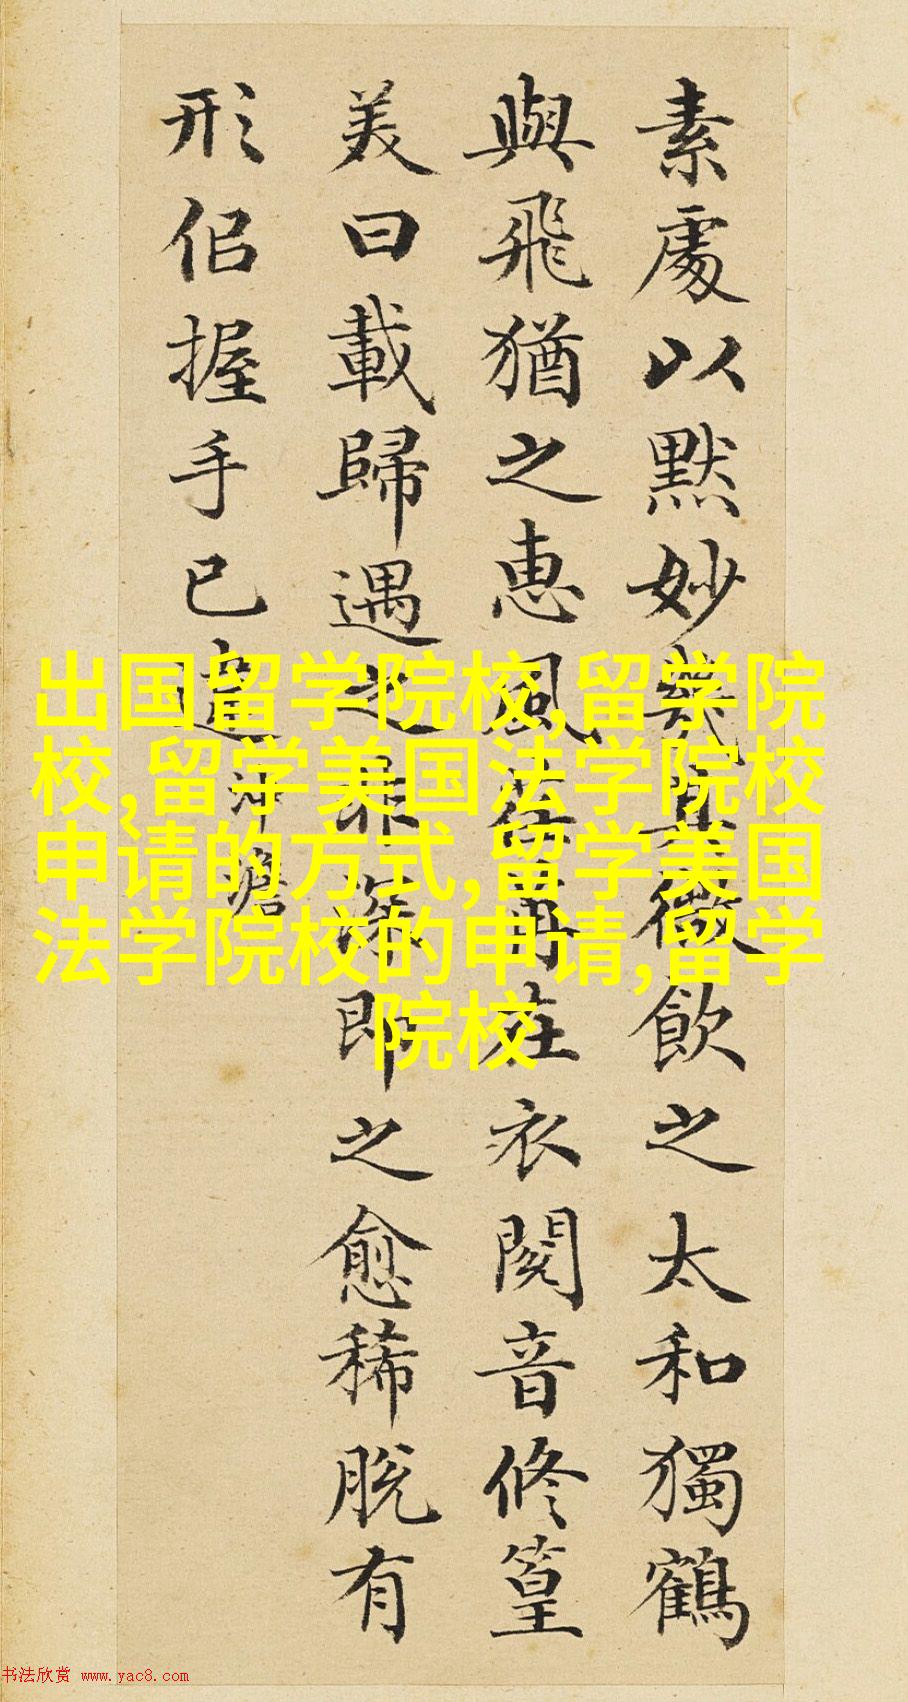 素處以默妙幾其微飲之太和獨鶴
與飛猶之惠風荏苒在衣閱音修篁
美曰載歸遇之非深即之愈稀脫有
形佀握手已違
沖澹
出国留学院校,留学院
校,留学美国法学院校
申请的方式,留学美国
法学院校的申请,留学
院校
书法欣赏 www.yac8.com